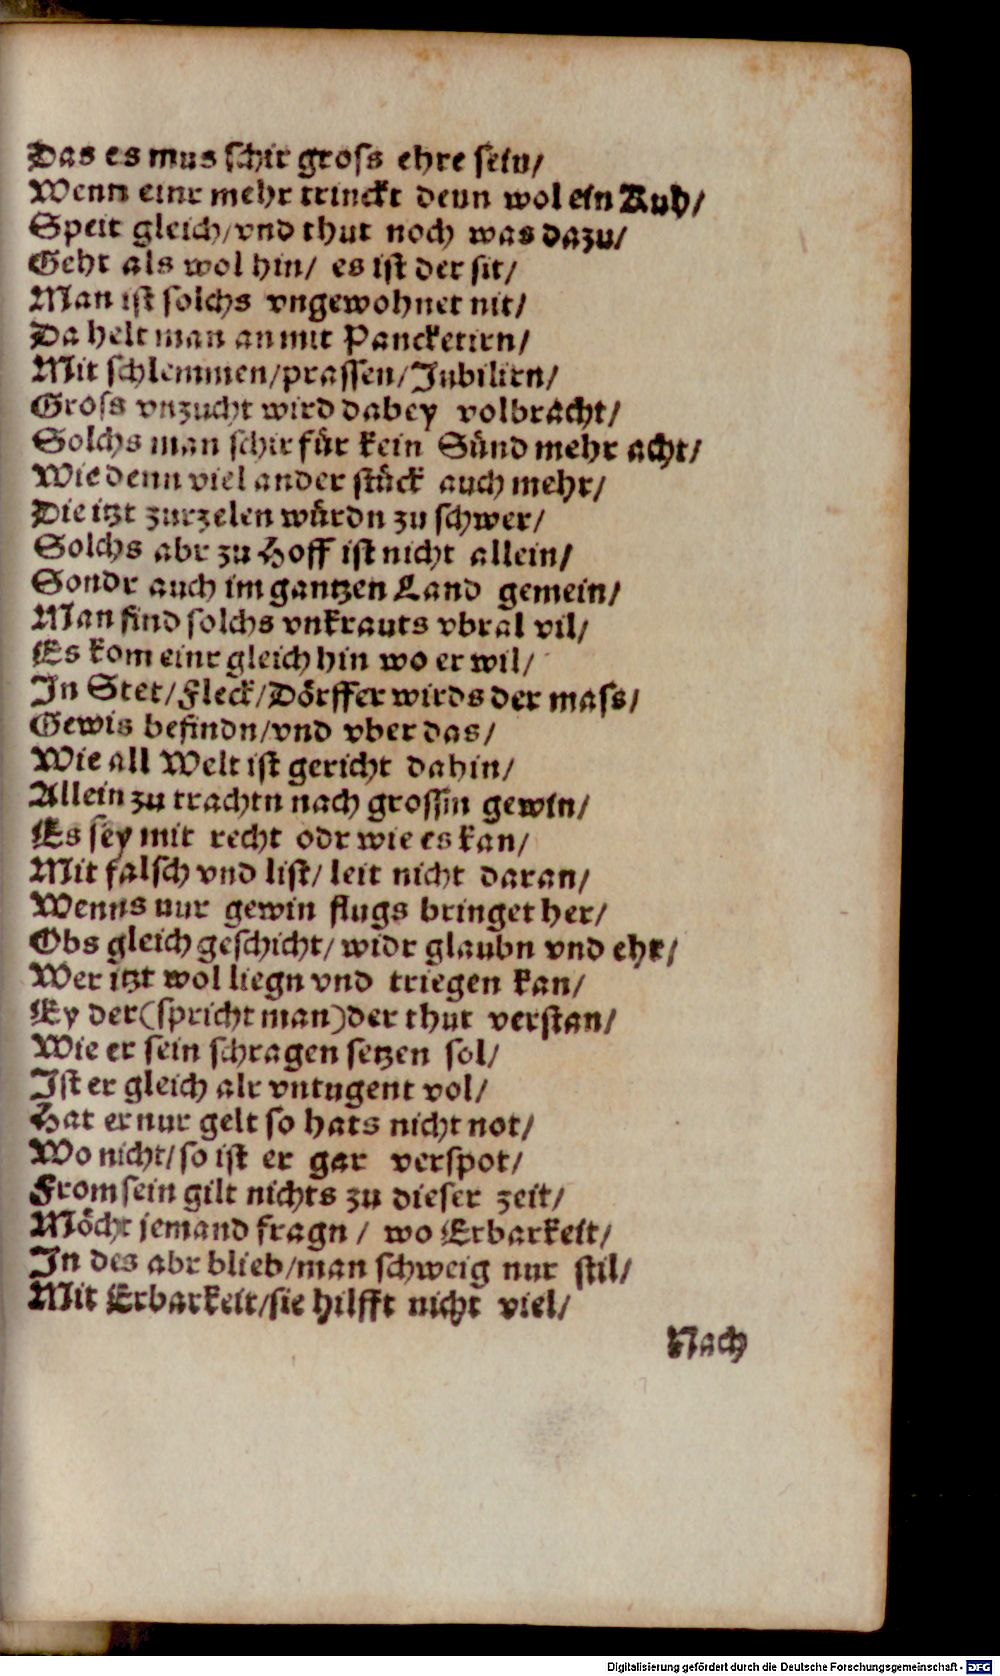 Das es mus schir gross ehre sein/
Wenn einr mehr trinckt denn wol ein Kuh/
Speit gleich/vnd thut noch was dazu/
Geht als wol hin/ es ist der sit/
Man ist solchs vngewohnet nit/
Da helt man an mit Panckettirn/
Mit schlemmen/prassen/Jubilirn/
Gross vnzucht wird dabey volbracht/
Solchs man schir für kein Sünd mehr acht/
Wie denn viel ander stück auch mehr/
Die itzt zurzelen würdn zu schwer/
Solchs abr zu Hoff ist nicht allein/
Sondr auch im gantzen Land gemein/
Man find solchs vnkrauts vbral vil/
Es kom einr gleich hin wo er wil/
In Stet/Fleck/Dörffer wirds der mass/
Gewis befindn/vnd vber das/
Wie all Welt ist gericht dahin/
Allein zu trachtn nach grossm gewin/
Es sey mit recht odr wie es kan/
Mit falsch vnd list/ leit nicht daran/
Wenns nur gewin flugs bringet her/
Obs gleich geschicht/ widr glaubn vnd ehr/
Wer itzt wol liegn vnd triegen kan/
Ey der(spricht man)der thut verstan/
Wie er sein schragen setzen sol/
Ist er gleich alr vntugent vol/
Hat er nur gelt so hats nicht not/
Wo nicht/so ist er gar verspot/
From sein gilt nichts zu dieser zeit/
Möcht jemand fragn / wo Erbarkeit/
In des abr blieb/man schweig nur stil/
Mit Erbarkeit/sie hilfft nicht viel/
Nach
Digitalisierung gefördert durch die Deutsche Forschungsgemeinschaft - DFG